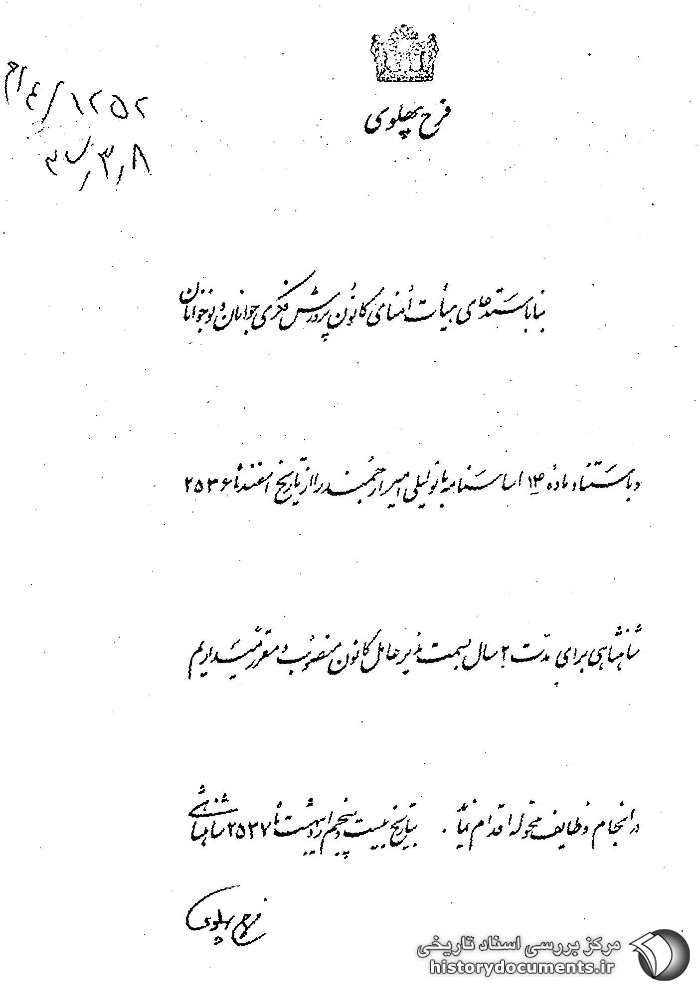 فرح پهلوی
۱۲۵۲/ ۴
۳۷٫۳٫۸
بنا باستدعای هیأت اُمنای کانون پرورش فکری جوانان و نوجوانان
و باستناد ماده ۱۴ اساسنامه بانو لیلی امیر ارجمند را از تاریخ اسفندماه ۲۵۳۶
شاهنشاهی برای مدّت ۲ سال بسمت مدیر عامل کانون منصوب و مقرر میداریم
در انجام وظایف محوّله اقدام نماید. بتاریخ بیست و پنجم اردیبهشت ماه ۲۵۳۷ شاهنشاهی
فرح پهلوی
مرکز بررسی اسناد تاریخی
historydocuments.ir